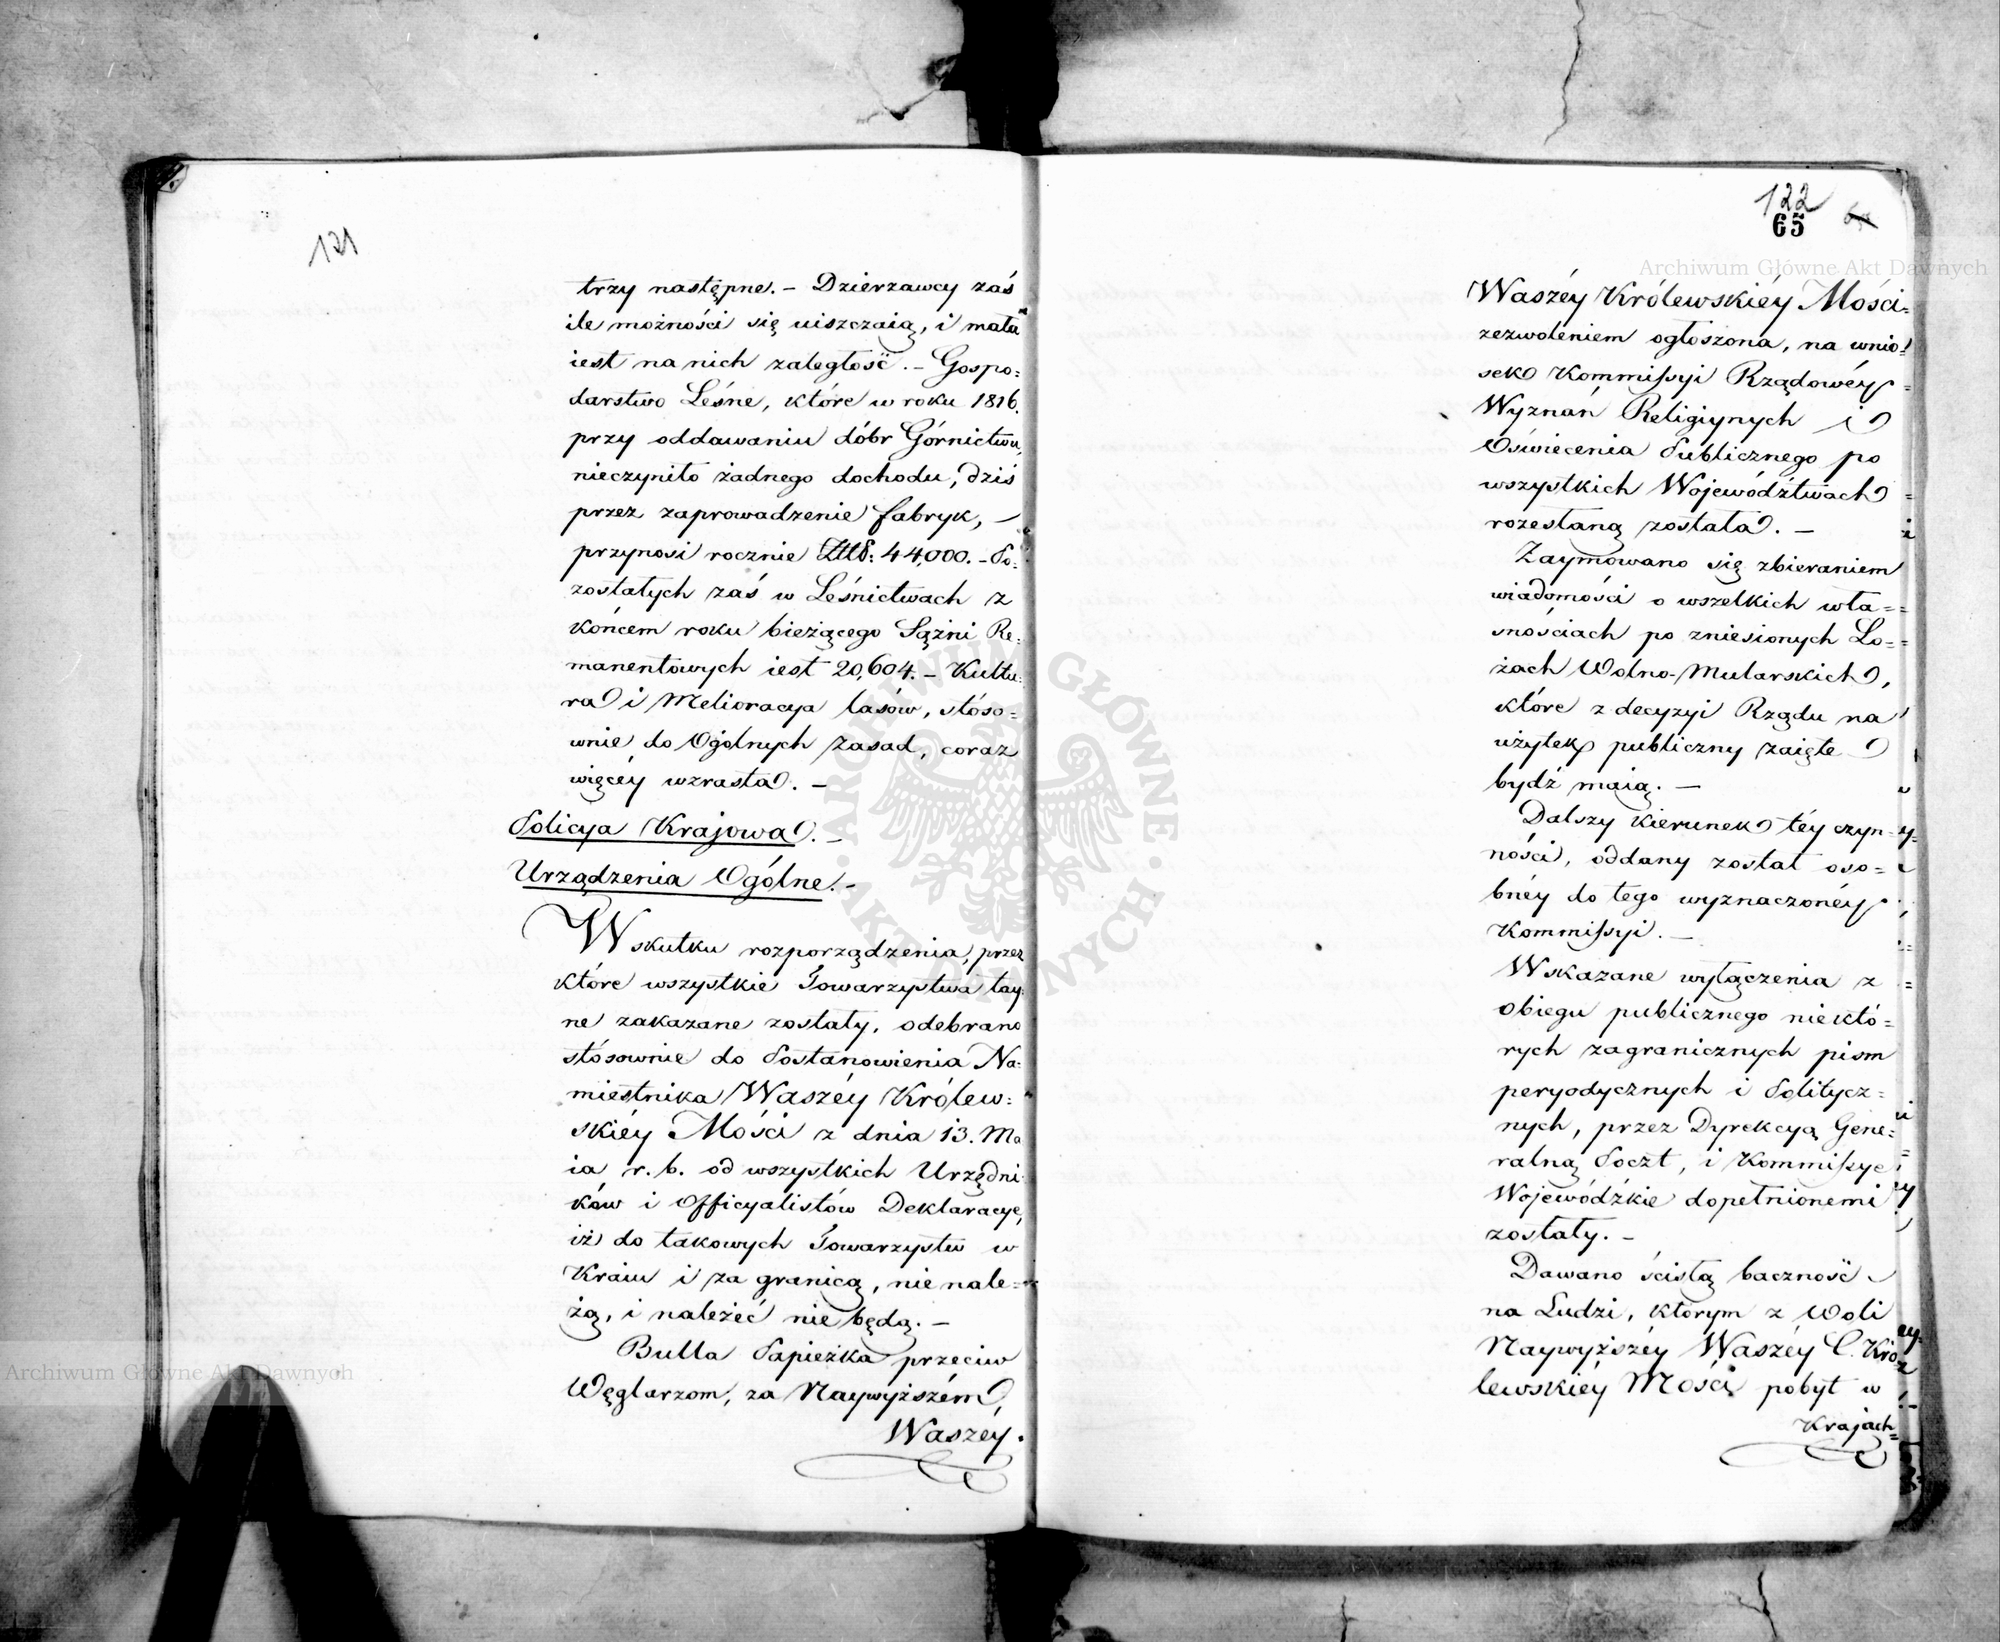 121
trzy następne. – Dzierzawcy zaś
ile możności się uiszczaią, i mała
iest na nich zaległość. – Gospo:
darstwo Leśne, które w roku 1816.
przy oddawaniu dóbr Górnictwu,
nieczyniło żadnego dochodu, dziś
przez zaprowadzenie fabryk, –
przynosi rocznie 44,000. – Po:
zostałych zaś w Leśnictwach z
końcem roku bieżącego Sążni Re:
manentowych iest 20,604. – Kultu:
ra i Melioracya lasów, stóso:
wnie do Ogólnych zasad, coraz
więcéy wzrasta. –
Policya Krajowa. –
Urządzenia Ogólne. –
Wskutku rozporządzenia, przez
które wszystkie Towarzystwa tay:
ne zakazane zostały, odebrano
stósownie do Postanowienia Na:
miestnika Waszéy Królew:
skiéy Mości z dnia 13. Ma
ia r. b. od wszystkich Urzędni:
ków i Officyalistów Deklaracye,
iż do takowych Towarzystw w
Kraiu i za granicą, nie nale:
żą, i należéć nie będą. –
Bulla Papiezka przeciw
Węglarzom, za Naywyższém
Waszéy.
122
65
Waszéy Królewskiéy Mości
zezwoleniem ogłoszona, na wnio:
sek Kommissyi Rządowéy
Wyznań Religiynych i
Oświecenia Publicznego po
wszystkich Województwach
rozesłaną została. –
Zaymowano się zbieraniem
wiadomości o wszelkich wła:
snościach po zniesionych Lo:
żach Wolno-Mularskich,
które z decyzyi Rządu na
użytek publiczny zaięte
bydź maią. –
Dalszy kierunek téy czyn:
ności, oddany został oso:
bnéy do tego wyznaczonéy
Kommissyi. –
Wskazane wyłączenia z
obiegu publicznego niektó:
rych zagranicznych pism
peryodycznych i Politycz:
nych, przez Dyrekcyą Gene:
ralną Poczt, i Kommissye
Wojewódzkie dopełnionemi
zostały. –
Dawano ścisłą baczność
na Ludzi, którym z Woli
Naywyższéy Waszéy C. Kró
lewskiéy Mości pobyt w
Krajach
Archiwum Główne Akt Dawnych
Archiwum Główne Akt Dawnych
ARCHIWUM GŁÓWNE AKT DAWNYCH